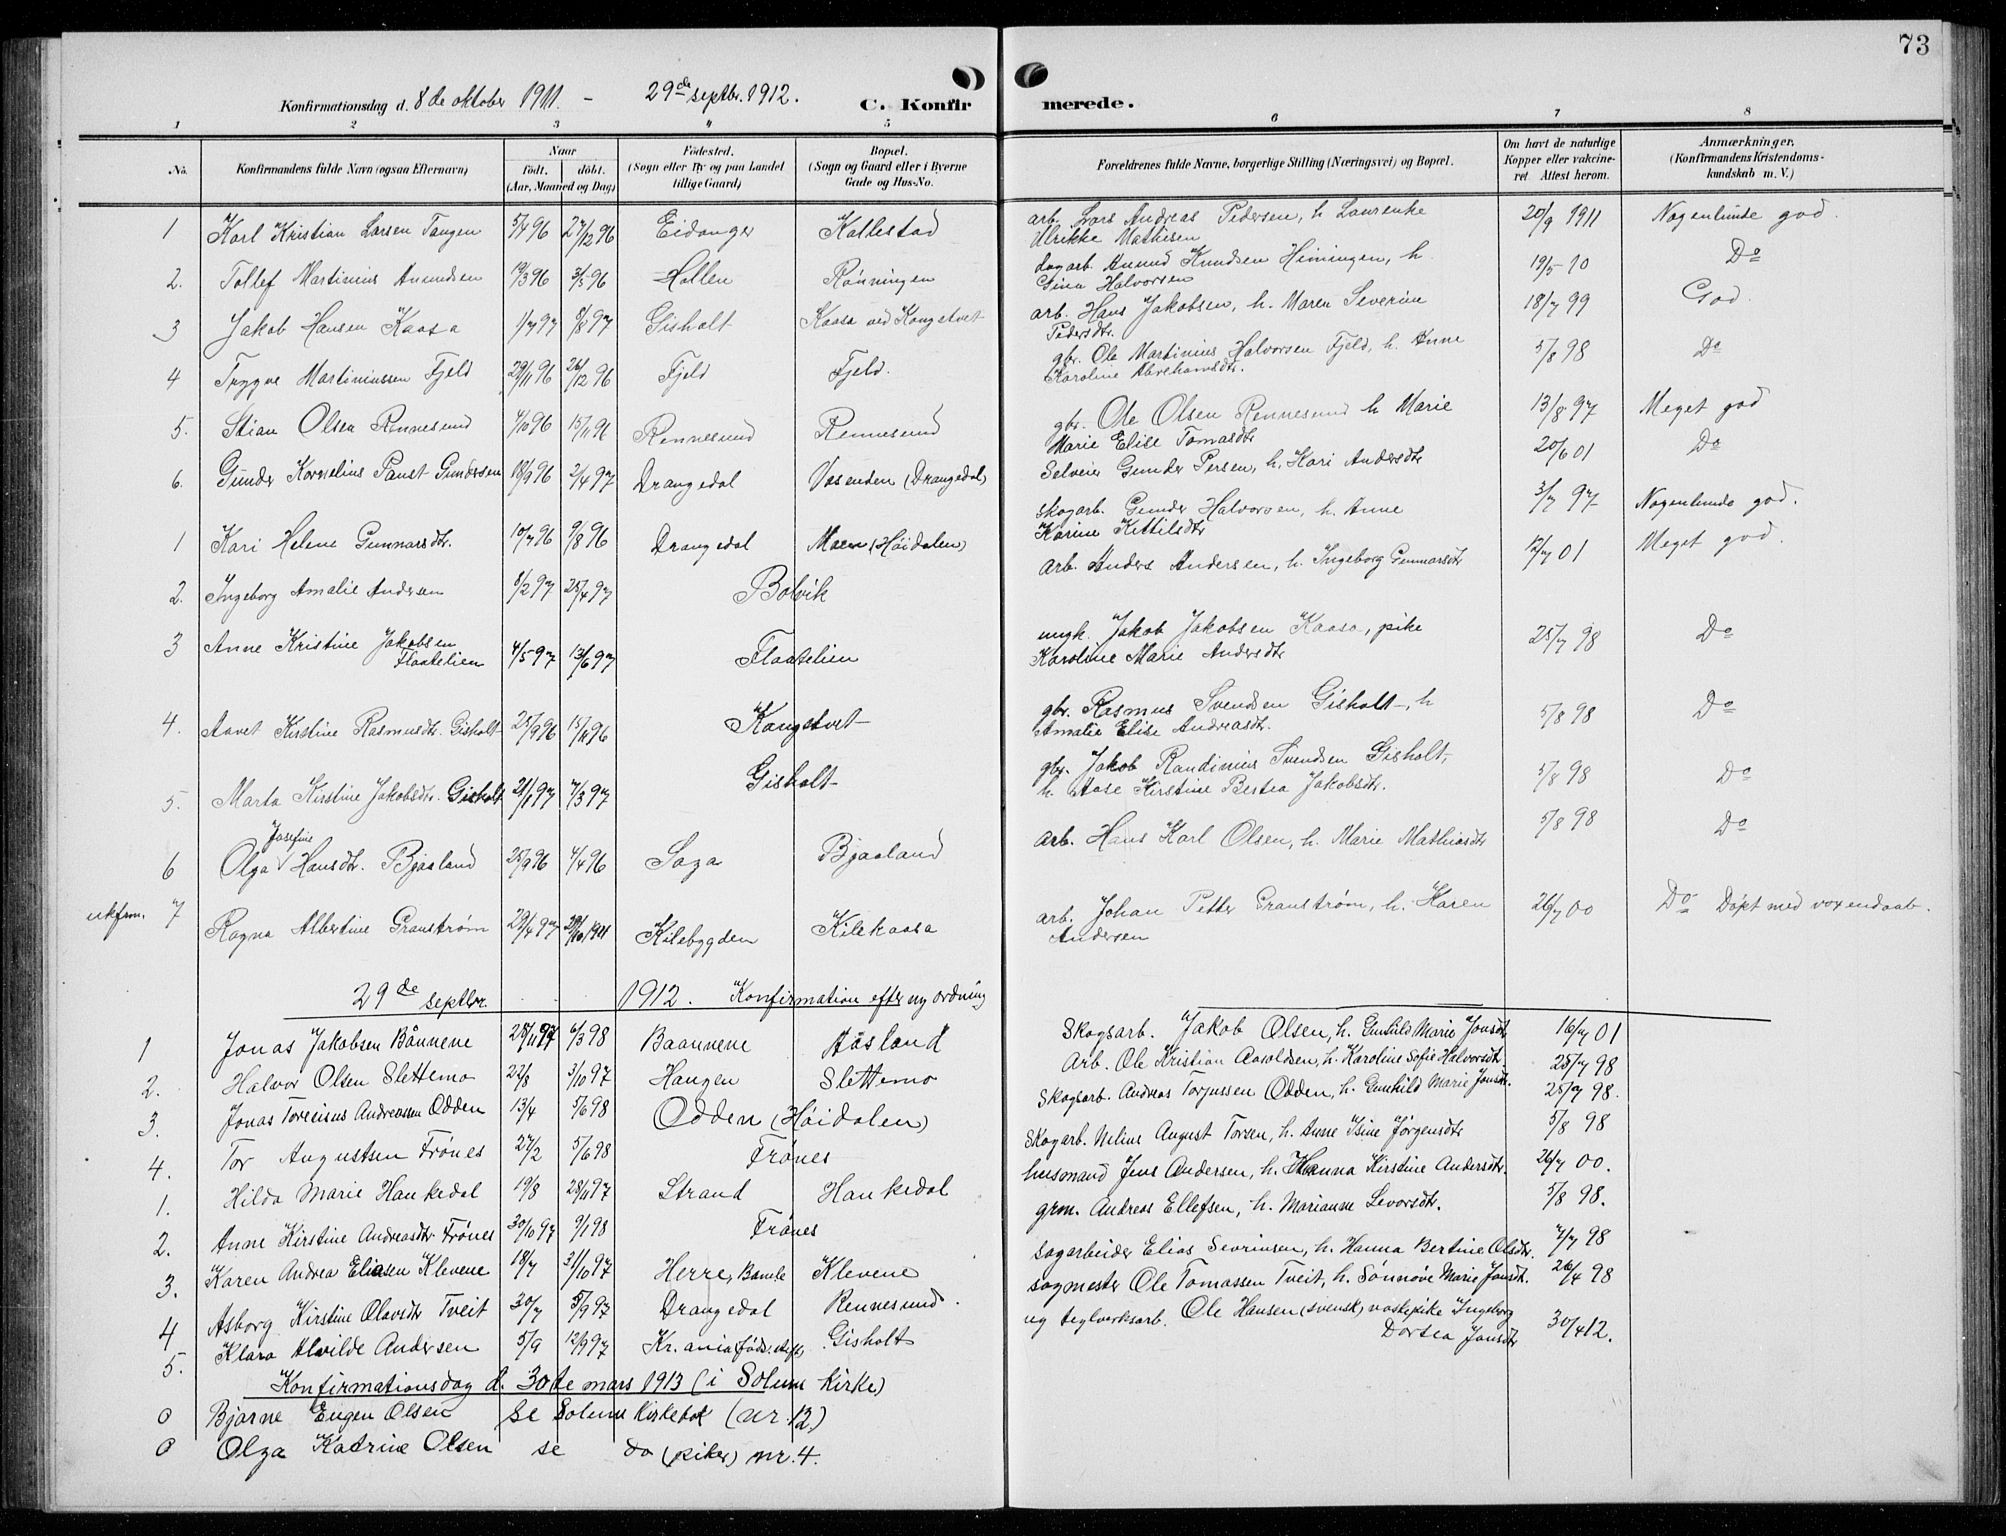 73
Konfirmationsdag d. 8de oktober 1911. - 29de septbr. 1912. C. Konfirmerede.
1 2 3 4 5 6 7 8
No. Konfirmandens fulde Navn (ogsaa Efternavn) Naar født. døbt. (Aar, Maaned og Dag) Fødested. (Sogn eller By og paa Landet tillige Gaard) Bopæl. (Sogn og Gaard eller i Byerne Gade og Hus-No. Forældrenes fulde Navne, borgerlige Stilling (Næringsvei) og Bopæl. Om havt de naturlige Kopper eller vakcineret Attest herom. Anmærkninger. (Konfirmandens Kristendomskundskab m. V.)
1 Karl Kristian Larsen Tangen 5/4 96 27/12 96 Eidanger Kallestad arb. Lars Andreas Pedersen, h. Laurenke Ulrikke Mathisen 20/9 1911 Nogenlunde god.
2. Tollef Martinius Anundsen 19/3 96 3/5 96 Hollen Rønningen Anund Knudsen Himingen, h. Gina Halvorsen 19/5 10 Do
3 Jakob Hansen Kaasa 1/7 97 8/8 97 Gisholt Kaasa ved Kongstvet arb. Hans Jakobsen, h. Maren Severine Pedersdtr. 18/7 99 God.
4 Trygve Martiniussen Fjeld 29/11 96 26/12 96 Fjeld Fjeld. gbr. Ole Martinius Halvorsen Fjeld, h. Anne Karoline Abrehamsdtr. 5/8 98 Do
5. Stian Olsen Rennesund 4/10 96 15/11 96 Rennesund Rennesund gbr. Ole Olsen Rennesund h Marie Marie Elise Tomasdtr 13/8 97 Meget god
6. Gunder Kornelius Paust Gundersen 18/9 96 2/4 97 Drangedal Vosenden (Drangedal) Selveier Gunder Persen, h. Kari Andersdtr 20/6 01 Do
1 Kari Helene Gunnarsdtr. 10/7 96 9/8 96 Drangedal Moen (Høidalen) Skogarb. Gunder Halvorsen, h. Anne Karine Kittilsdtr 3/7 97 Nogenlunde god.
2. Ingeborg Amalie Andersen 8/2 97 25/4 97 Bolvik arb. Anders Andersen, h. Ingeborg Gunnarsdtr 12/7 01 Meget god.
3 Anne Kristine Jakobsen Flaatelien 4/5 97 13/6 97 Flaatelien ungk. Jakob Jakobsen Kaasa, pike Karoline Marie Andersdtr 25/7 98 Do
4. Aavet Kirstine Rasmusdtr. Gisholt 25/9 96 15/11 96 Kongstvet gbr. Rasmus Svendsen Gisholt, h Amalie Elise Andreasdtr. 5/8 98 Do
5. Marta Kirstine Jakobsdtr. Gisholt 21/1 97 7/3 97 Gisholt gbr. Jakob Randinius Svendsen Gisholt, h. Aase Kirstine Bertea Jakobsdtr. 5/8 98 Do
6 Olga Josefine Hansdtr. Bjaaland 25/9 96 4/4 96 Saga Bjaaland arb. Hans Karl Olsen, h. Marie Mathiasdtr 5/8 98 Do
ukfrm. 7 Ragna Albertine Granstrøm 29/4 97 29/10 1911 Kilebygden Kilekaasa arb. Johan Petter Granstrøm, h. Karen Andersen 26/7 00 Do Døpt med voxendaab.
29de septbr. 1912. Konfirmation efter ny ordning
1 Jonas Jakobsen Bånnene 28/11 97 6/3 98 Baannene Åsland Skogsarb. Jakob Olsen, h. Gunhild Marie Jonsdtr 16/7 01
2. Halvor Olsen Slettemo 22/8 3/10 97 Haugen Slettemo Arb. Ole Kristian Aasoldsen, h. Karoline Sofie Halvorsdtr 25/7 98
3. Jonas Toresius Andreassen Odden 13/4 5/6 98 Odden (Høidalen) Skogsarb. Andreas Torjussen Odden, h. Gunhild Marie Jonsdtr. 25/7 98.
4. Tor Augustsen Frönes 27/2 5/6 98 Frönes Skogarb. Nelius August Torsen, h. Anne Isine Jørgensdtr 5/8 98
1. Hilda Marie Hankedal 19/8 28/11 97 Strand Hankedal husmand Jens Andersen, h. Hanna Kirstine Andersdtr. 26/7 00.
2. Anne Kirstine Andreasdtr Frönes 30/10 97 9/1 98 Frönes grm. Andreas Ellefsen, h. Marianne Levorsdtr. 5/8 98.
3. Karen Andrea Eliasen Klevene 18/7 31/10 97 Herre, Bamle Klevene Sagarbeider Elias Sevrinsen, h. Hanna Bertine Olsdtr. 7/7 98
4 Asborg Kirstine Olavsdtr Tveit 30/7 5/9 97 Drangedal Rennesund. sagmester Ole Tomassen Tveit, h. Sønnøve Marie Jonsdt. 26/4 98
5. Klara Alvilde Andersen 5/9 12/9 97 Kr.ania føds.stift. Gisholt ug teglverksarb. Ole Hansen (svensk) Ingeborg Dortea Jonsdtr 30/4 12.
Konfirmationsdag d. 30te mars 1913 (i Solum kirke)
0 Bjarne Eugen Olsen se Solum Kirkebok (nr. 12.)
0 Olga Katrine Olsen se do (piker) nr. 4.